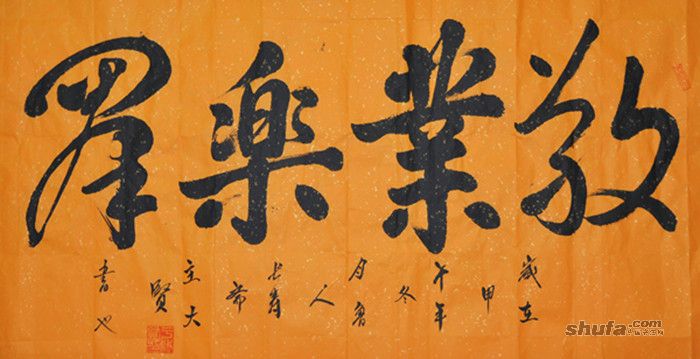 敬業樂羣
歲在
甲
午年
冬
月魯
人
長清
帝
主大
賢
書也
shufa.com